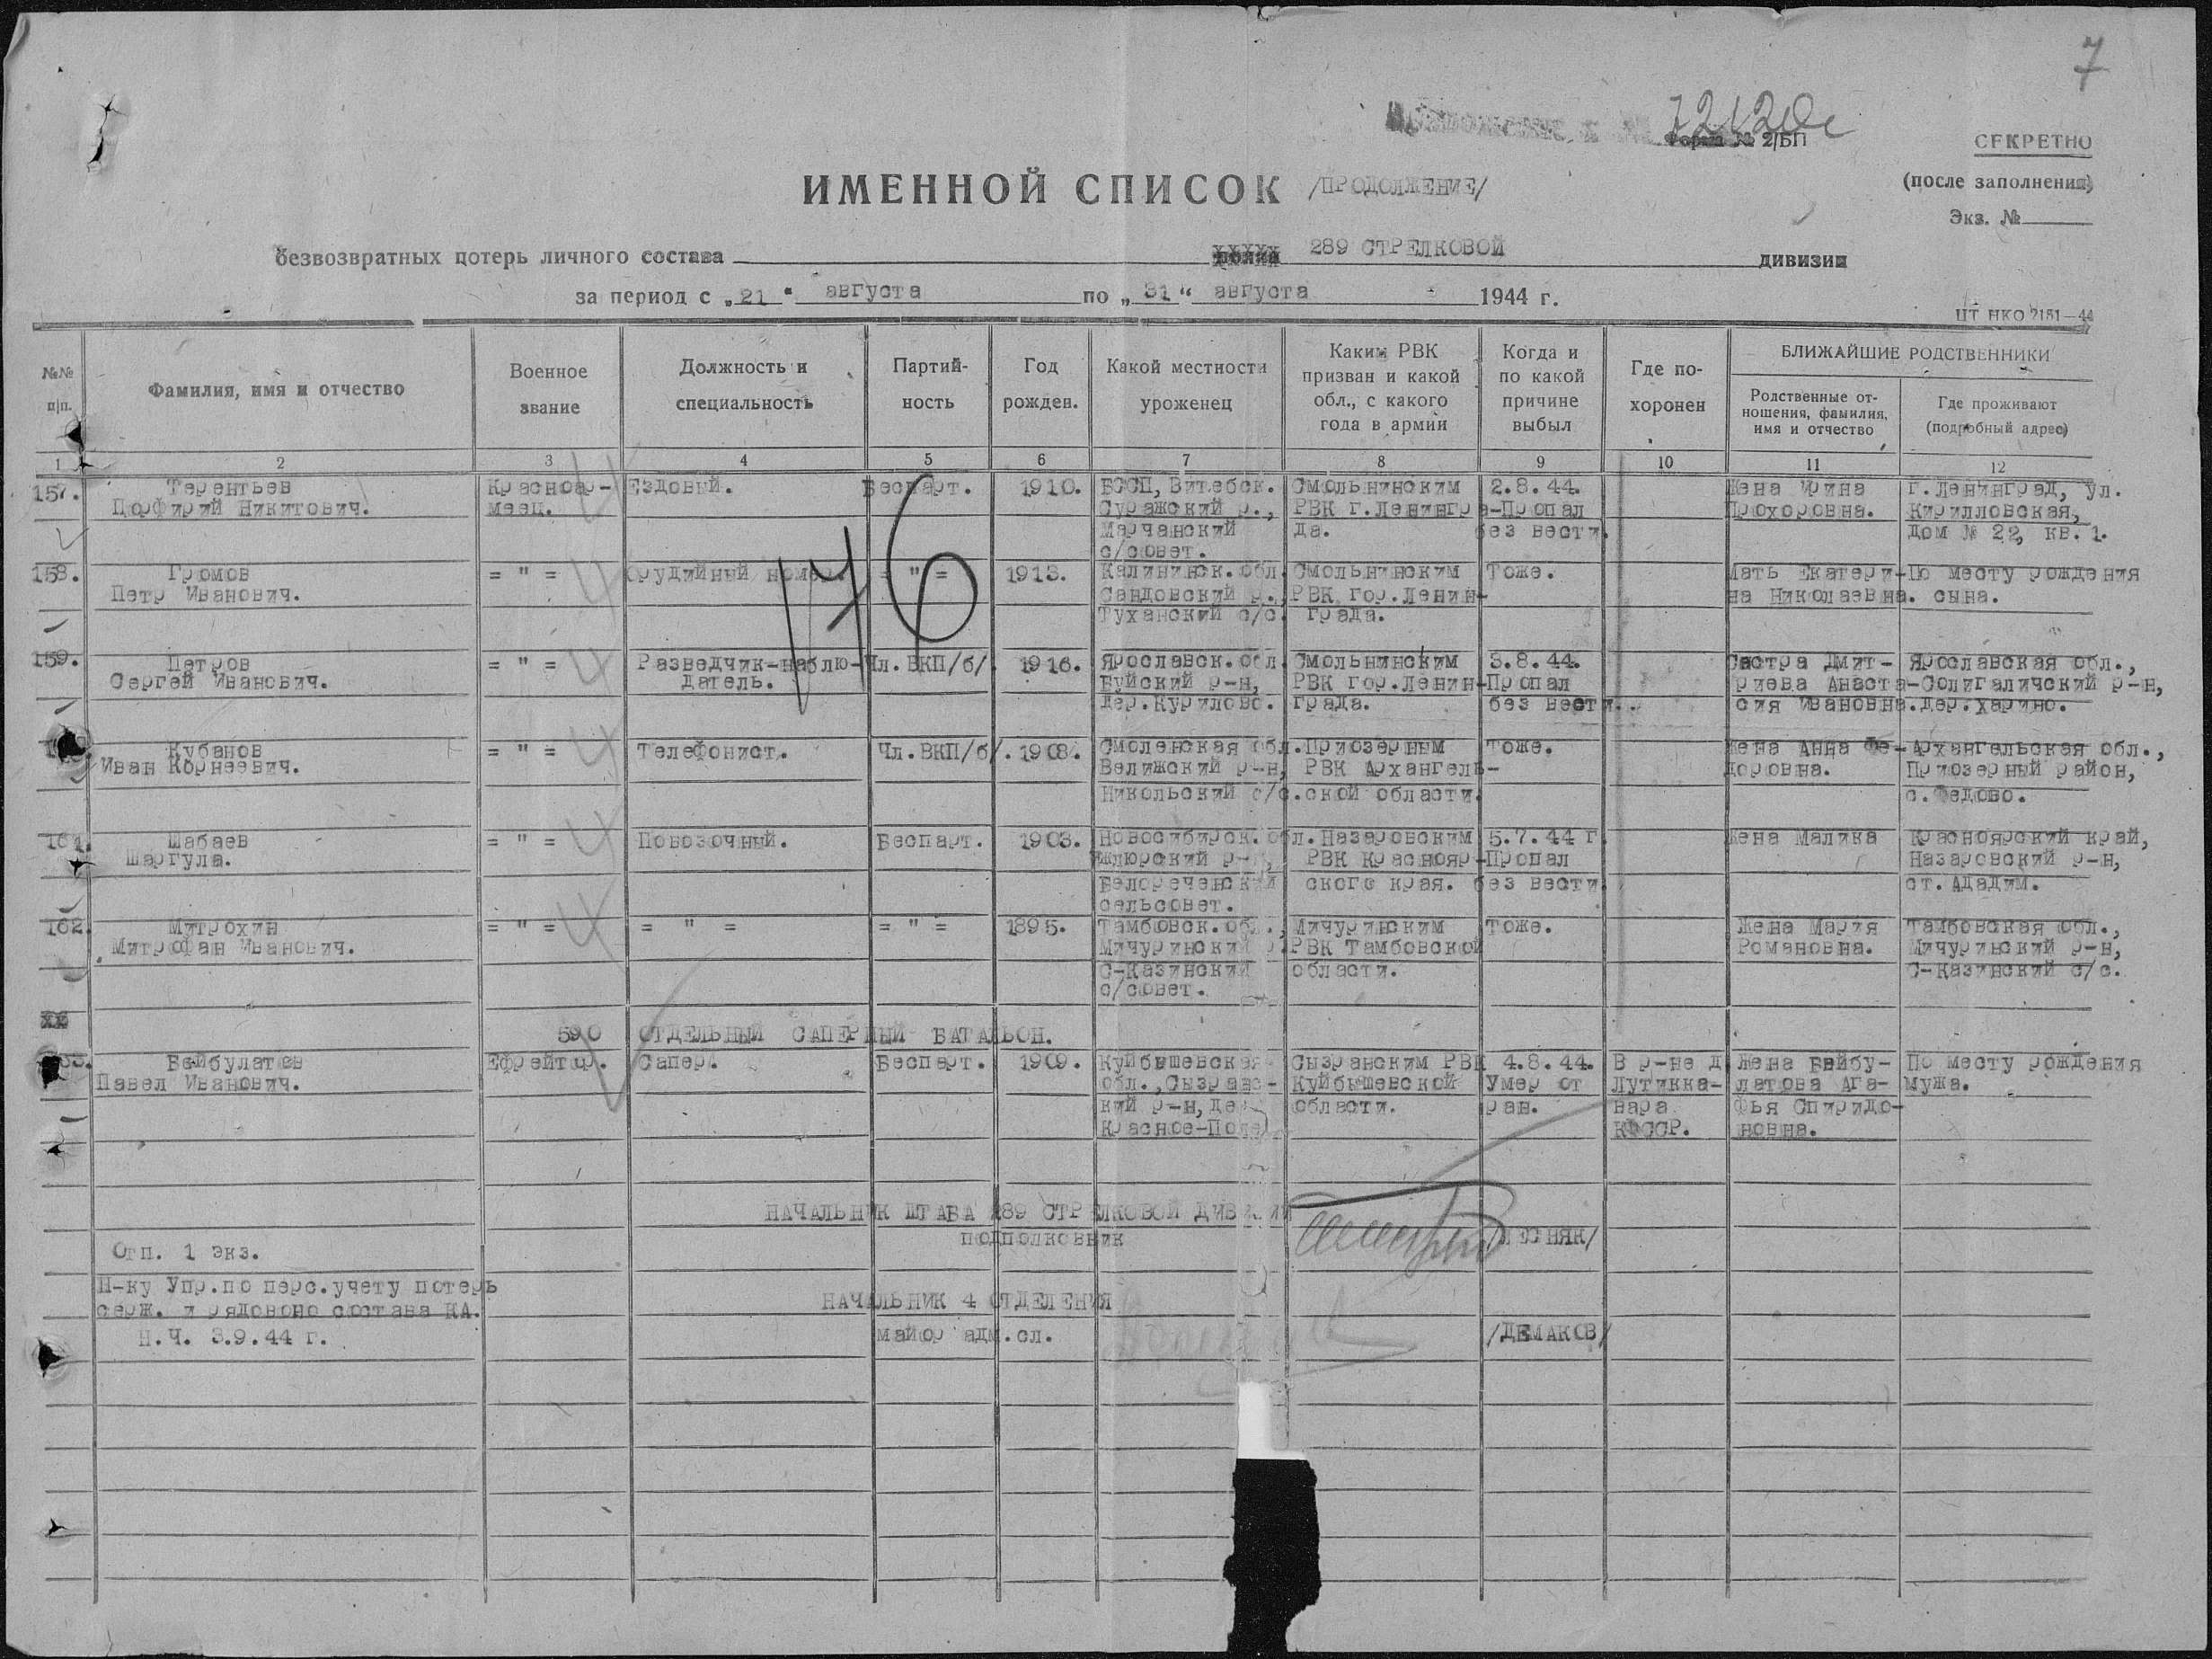 7
72120с
Форма № 2/БП
СЕКРЕТНО
(после заполнения)
Экз. №
ИМЕННОЙ СПИСОК /ПРОДОЛЖЕНИЕ/
безвозвратных потерь личного состава 289 СТРЕЛКОВОЙ дивизии
за период с „21“ августа по „31“ августа 1944 г.
ЦТ НКО 2151—44
№№ п/п.
Фамилия, имя и отчество
Военное звание
Должность и специальность
Партий-ность
Год рожден.
Какой местности уроженец
Каким РВК призван и какой обл., с какого года в армии
Когда и по какой причине выбыл
Где по-хоронен
БЛИЖАЙШИЕ РОДСТВЕННИКИ
Родственные от-ношения, фамилия, имя и отчество
Где проживают (подробный адрес)
1 2 3 4 5 6 7 8 9 10 11 12
157. Терентьев Красноар- Ездовый. Беспарт. 1910. БССП, Витебск. Смольнинским 2.8.44. Жена Ирина г.Ленинград, ул.
Порфирий Никитович. меец. Суражский р., РВК г.Ленингра- Пропал Прохоровна. Кирилловская,
Марчанский да. без вести. Дом № 22, кв. 1.
с/совет.
158. Громов = " = Орудийный номер. = " = 1913. Калининск.обл. Смольнинским Тоже. Мать Екатери- По месту рождения
Петр Иванович. Сандовский р., РВК гор.Ленин- на Николаевна. сына.
Туханский с/с. града.
146
159. Петров = " = Разведчик-наблю- Чл.ВКП/б/. 1916. Ярославск.обл. Смольнинским 3.8.44. Сестра Дмит- Ярославская обл.,
Сергей Иванович. датель. Буйский р-н, РВК гор.Ленин- Пропал риева Анаста- Солигаличский р-н,
дер.Курилово. града. без вести. сия Ивановна. дер.Харино.
Кубанов = " = Телефонист. Чл.ВКП/б/. 1908. Смоленская обл. Приозерным Тоже. Жена Анна Фе- Архангельская обл.,
Иван Корнеевич. Велижский р-н, РВК Архангель- доровна. Приозерный район,
Никольский с/с. ской области. с.Федово.
161. Шабаев = " = Повозочный. Беспарт. 1903. Новосибирск.обл. Назаровским 5.7.44 г. Жена Малика Красноярский край,
Шаргула. Ижморский р-н, РВК Краснояр- Пропал Назаровский р-н,
Белореченский ского края. без вести. ст. Ададим.
сельсовет.
162. Митрохин = " = = " = = " = 1895. Тамбовск.обл., Мичуринским Тоже. Жена Мария Тамбовская обл.,
Митрофан Иванович. Мичуринский р. РВК Тамбовской Романовна. Мичуринский р-н,
С-Казинский области. С-Казинский с/с.
с/совет.
590 ОТДЕЛЬНЫЙ САПЕРНЫЙ БАТАЛЬОН.
Бейбулатов Ефрейтор. Сапер. Беспарт. 1909. Куйбышевская Сызранским РВК 4.8.44. В р-не д. Жена Бейбу- По месту рождения
Павел Иванович. обл.,Сызранс- Куйбышевской Умер от Лутикка- латова Ага- мужа.
кий р-н, дер. области. ран. вара фья Спиридо-
Красное-Поле КФССР. новна.
НАЧАЛЬНИК ШТАБА 289 СТРЕЛКОВОЙ ДИВИЗИИ
ПОДПОЛКОВНИК /ЛЕСНЯК/
Отп. 1 экз.
Н-ку Упр.по перс.учету потерь
серж. и рядовоно состава КА.
Н.Ч. 3.9.44 г.
НАЧАЛЬНИК 4 ОТДЕЛЕНИЯ
майор адм.сл. /ДЕМАКОВ/